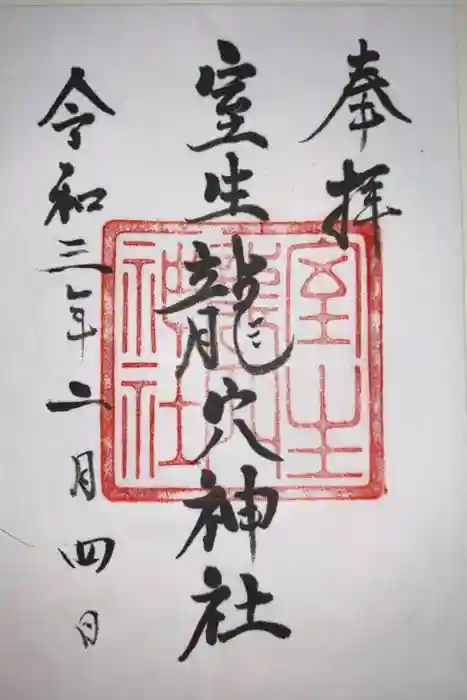 奉拝
室生龍穴神社
室生
龍穴
神社
令和三年二月四日